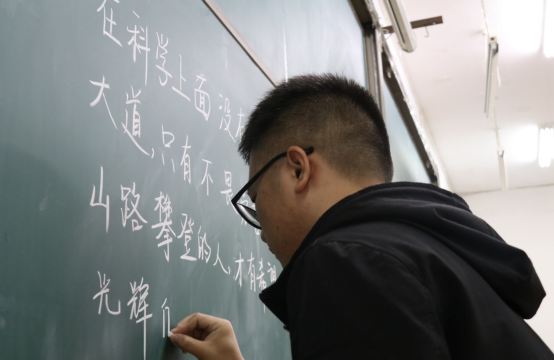 在科学上面没
大道,只有不
山路攀登的人,才有希
光辉